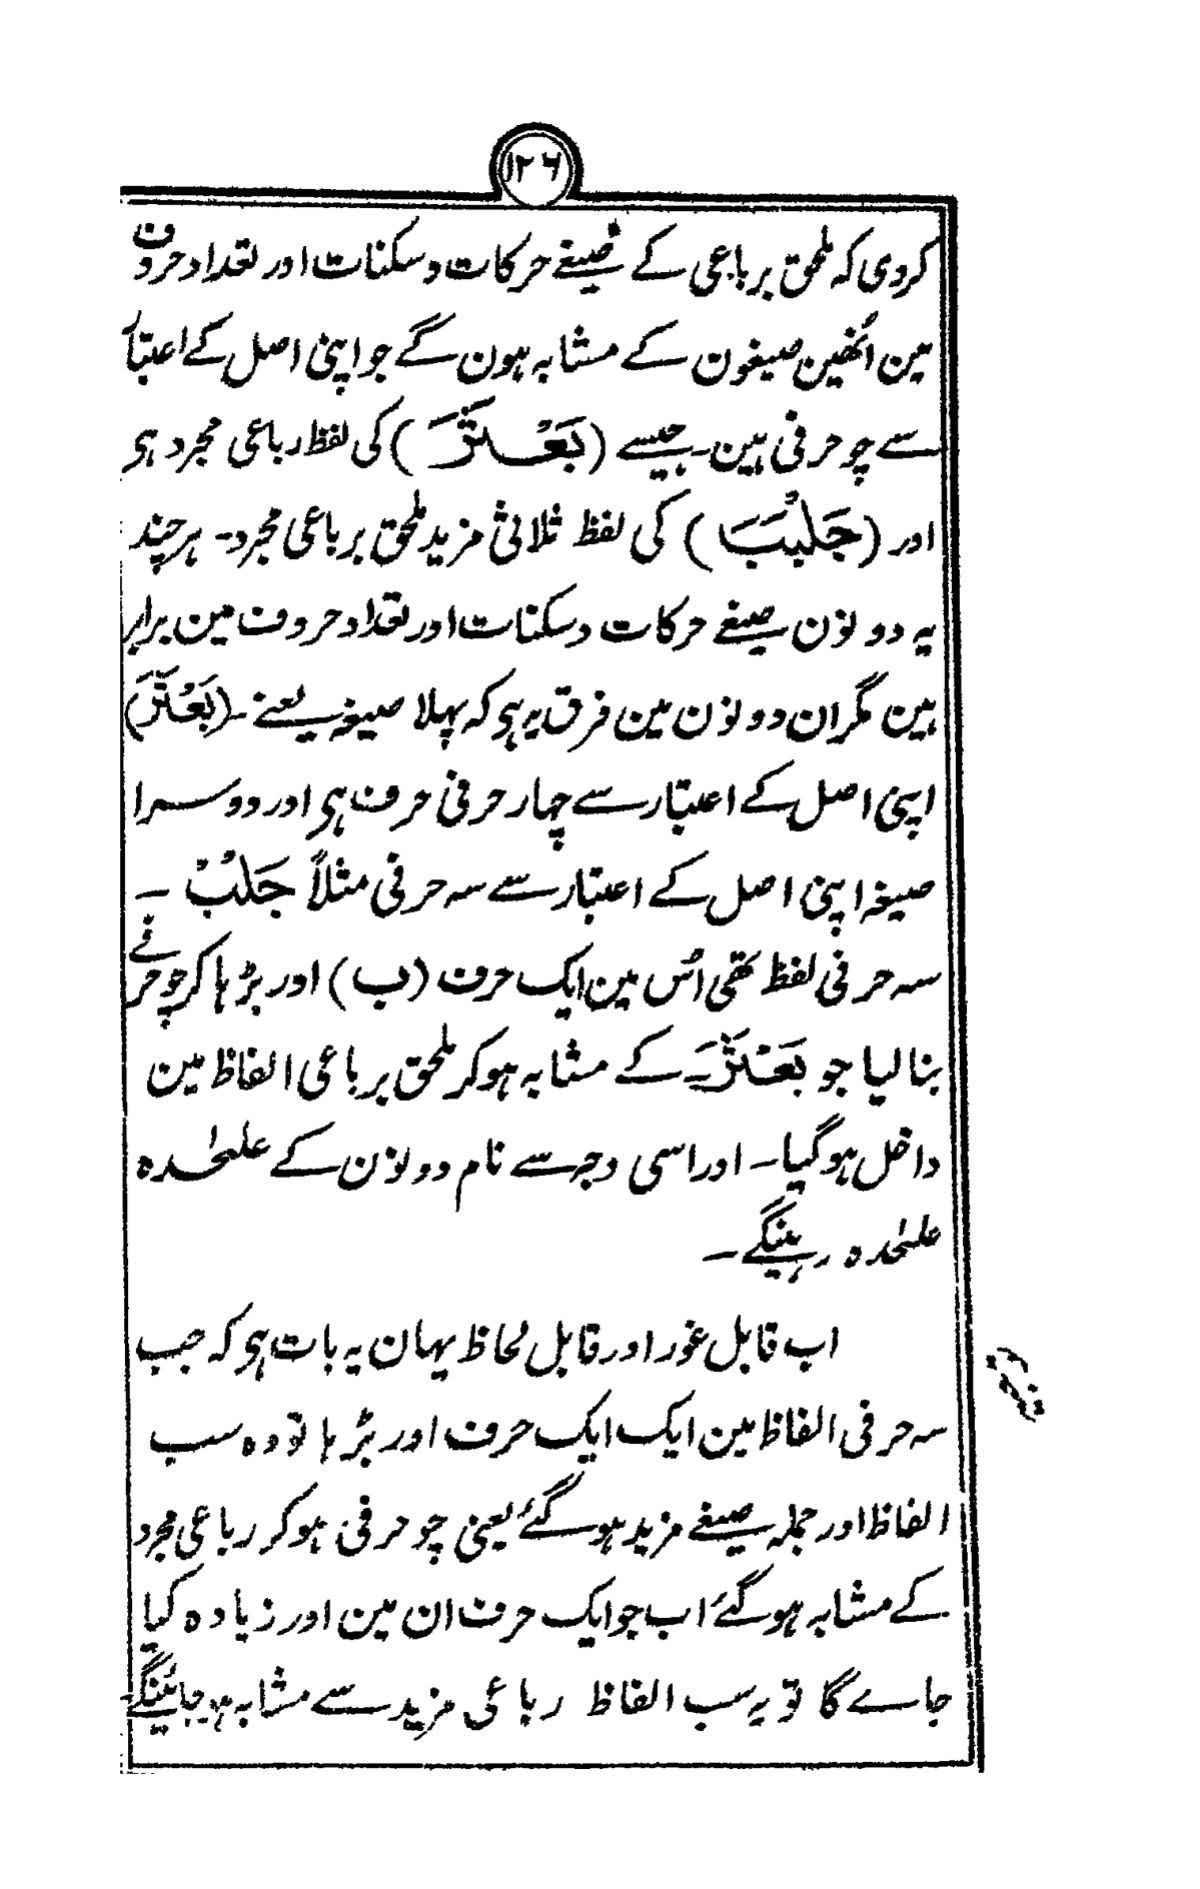 ۱۲۶
کردی کہ ملحق برباعی کے صیغے حرکات و سکنات اور تعداد حروف
مین اُنھین صیغون کے مشابہ ہون گے جو اپنی اصل کے اعتبار
سے چوحرفی ہین۔ جیسے (بَعْثَرَ) کی لفظ رباعی مجرد ہی
اور (جَلْبَبَ) کی لفظ ثلاثی مزید ملحق برباعی مجرد۔ ہرچند
یہ دونون صیغے حرکات و سکنات اور تعداد حروف مین برابر
ہین مگر ان دونون مین فرق یہ ہی کہ پہلا صیغہ یعنے۔ (بَعْثَرَ)
اپنی اصل کے اعتبار سے چہار حرفی حرف ہی اور دوسرا
صیغہ اپنی اصل کے اعتبار سے سہ حرفی مثلاً جَلْبْ ۔
سہ حرفی لفظ تھی اُس مین ایک حرف (ب) اور بڑہا کر چوحرفے
بنا لیا جو بَعْثَرَ کے مشابہ ہو کر ملحق برباعی الفاظ مین
داخل ہو گیا۔ اور اسی وجہ سے نام دونون کے علٰحدہ
علٰحدہ رہینگے۔
اب قابل غور اور قابل لحاظ یہان یہ بات ہی کہ جب
سہ حرفی الفاظ مین ایک ایک حرف اور بڑہا تو وہ سب
الفاظ اور جملہ صیغے مزید ہو گئے یعنی چوحرفی ہو کر رباعی مجرد
کے مشابہ ہو گئے اب جو ایک حرف ان مین اور زیادہ کیا
جاے گا تو یہ سب الفاظ رباعی مزید سے مشابہ ہو جائینگے